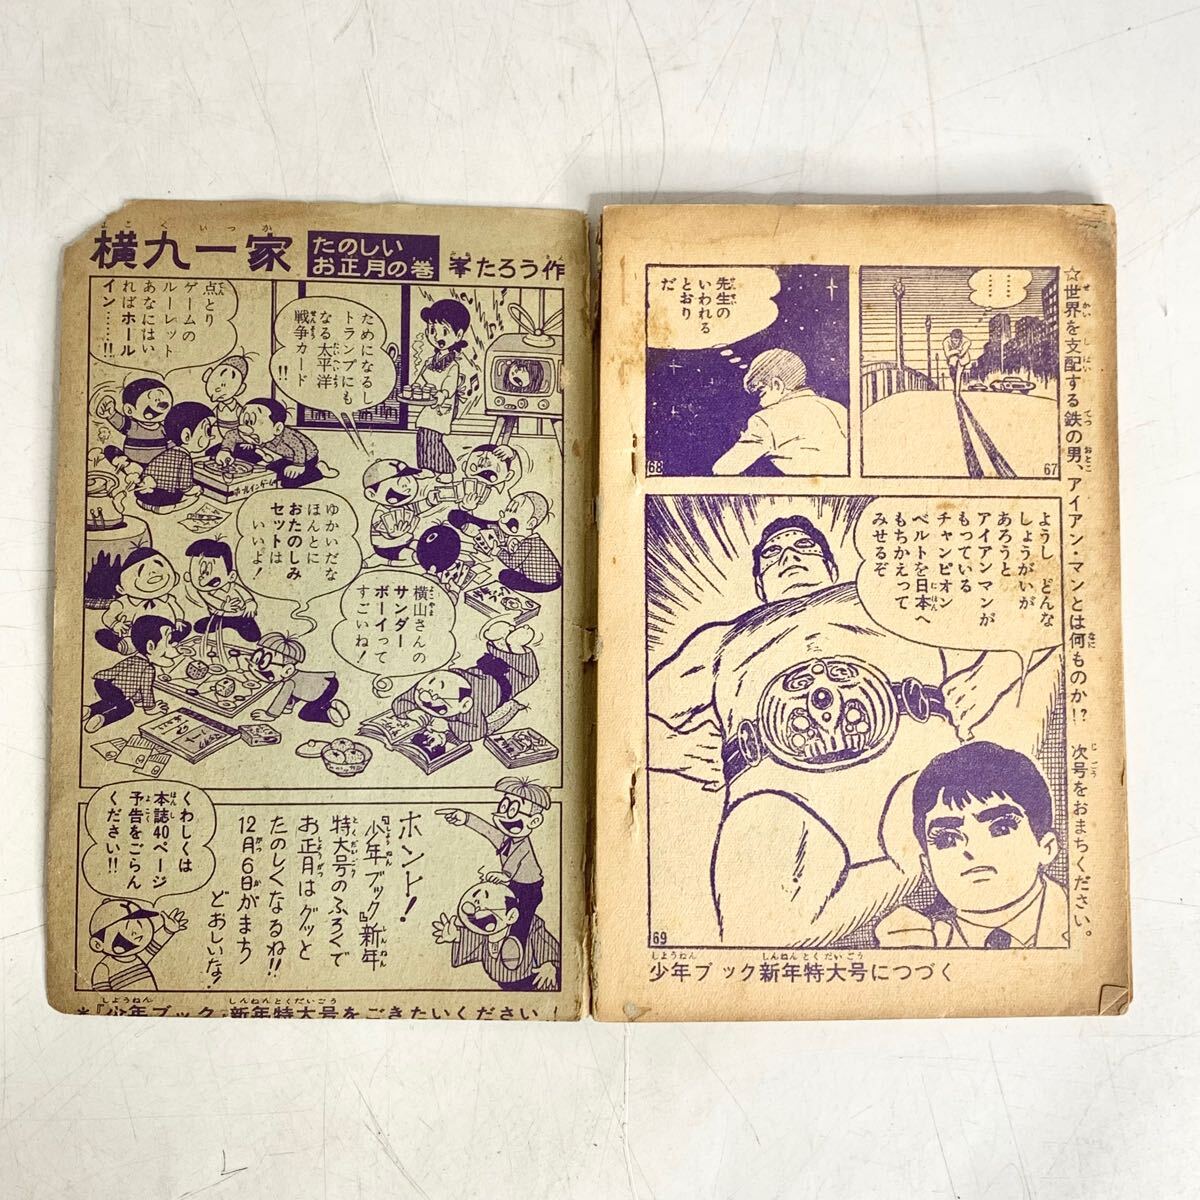 よこくいっか
横九一家
たのしい
お正月の巻
峯たろう作
点とり
ゲームの
ルーレット
あなにはい
ればホール
イン……!!
ためになるし
トランプにも
なる太平洋
戦争カード
!!
ゆかいだな
ほんとに
おたのしみ
セットは
いいよ！
横山さんの
サンダー
ボーイって
すごいね！
ホント！
『少年ブック』新年
特大号のふろくで
お正月はグッと
たのしくなるね!!
12月6日がまち
どおしいな！
くわしくは
本誌40ページ
予告をごらん
ください!!
＊『少年ブック』新年特大号をごきたいください！
☆世界を支配する鉄の男、アイアン・マンとは何ものか!?　次号をおまちください。
……
……
67
先生の
いわれる
とおり
だ
68
ようし　どんな
しょうがいが
あろうと
アイアンマンが
もっている
チャンピオン
ベルトを日本へ
もちかえって
みせるぞ
69
少年ブック新年特大号につづく